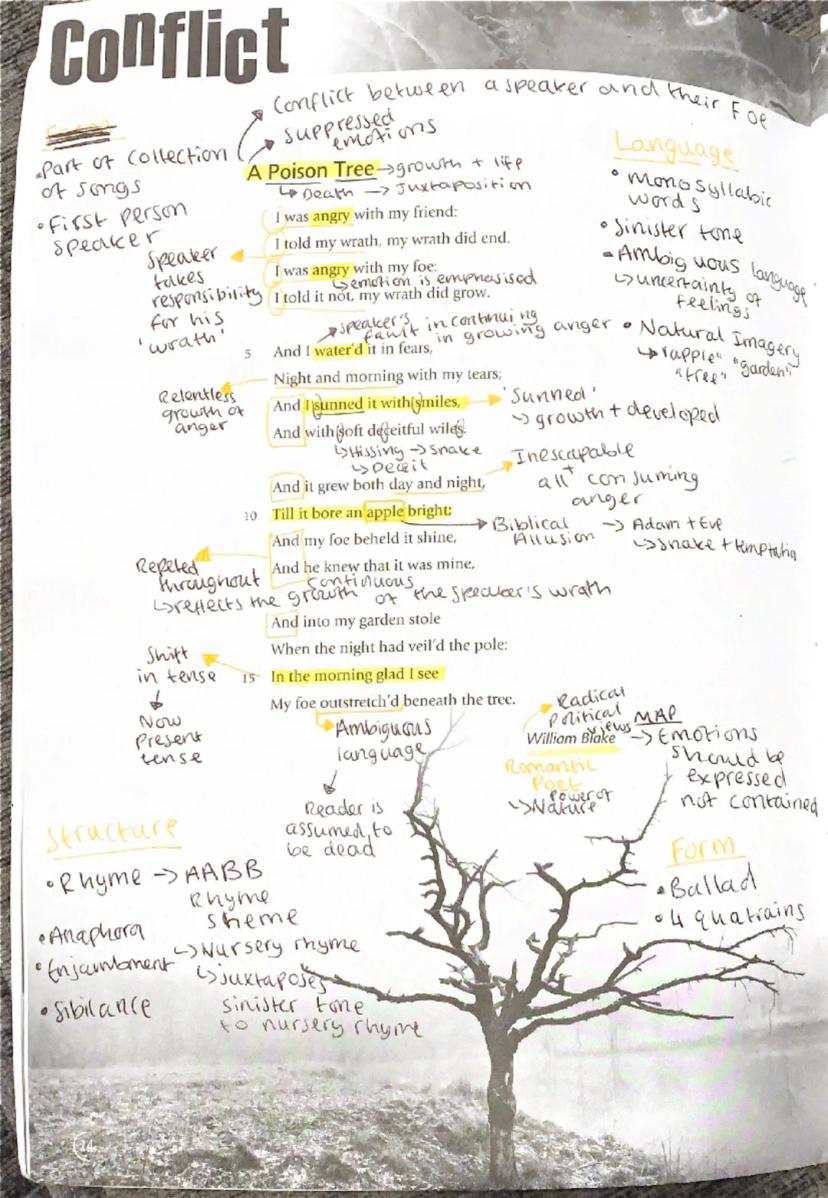 Conflict
Conflict between a speaker and their Foe
suppressed
emotions
• Part of collection
of songs
• First person
speaker
A Poison Tree → growth + life
↳ Death → Juxtaposition
I was angry with my friend:
I told my wrath, my wrath did end.
I was angry with my foe:
↳ emotion is emphasised
I told it not, my wrath did grow.
Speaker
takes
responsibility
for his
'wrath'
speaker's
fault in continuing
in growing anger
5 And I water'd it in fears,
Night and morning with my tears;
And I sunned it with smiles,
And with soft deceitful wiles.
Relentless
growth of
anger
'Sunned'
↳ growth + developed
↳ Hissing → Snake
↳ Deceit
And it grew both day and night,
10 Till it bore an apple bright;
And my foe beheld it shine,
And he knew that it was mine,
Inescapable
all + consuming
anger
Biblical
Allusion
→ Adam + Eve
↳ Snake + temptation
Repeted
throughout
continuous
↳ reflects the growth of the speaker's wrath
And into my garden stole
When the night had veil'd the pole:
15 In the morning glad I see
My foe outstretch'd beneath the tree.
Shift
in tense
↓
Now
Present
tense
Ambiguous
language
↓
Reader is
assumed, to
be dead
Radical
Political
views
William Blake
MAP
→ Emotions
should be
expressed
not contained
Romantic
Poet
↳ Power of
Nature
Language
• Monosyllabic
words
• Sinister tone
• Ambiguous language
↳ uncertainty of
feelings
• Natural Imagery
↳ "apple" "garden"
"tree"
Structure
• Rhyme → AABB
Rhyme
sheme
↳ Nursery rhyme
↳ juxtaposes
sinister tone
to nursery rhyme
• Anaphora
• Enjambment
• Sibilance
Form
• Ballad
• 4 quatrains
24